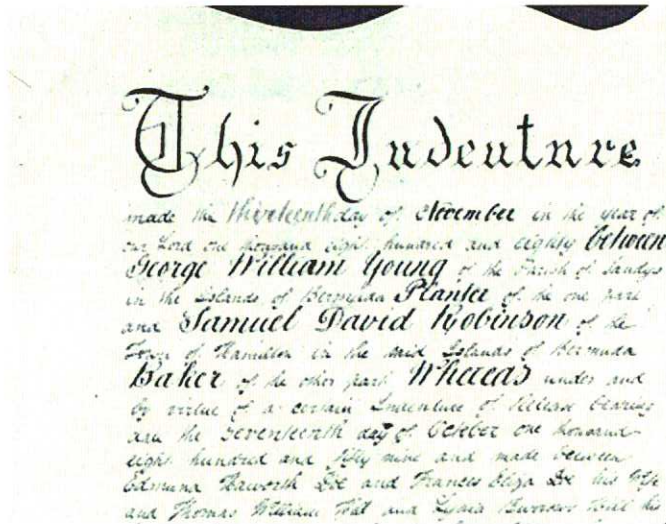 This Indenture
made the thirteenth day of November in the year of
our Lord one thousand eight hundred and eighty between
George William Young of the Parish of Sandys
in the Islands of Bermuda Planter of the one part
and Samuel David Robinson of the
Town of Hamilton in the said Islands of Bermuda
Baker of the other part Whereas under and
by virtue of a certain Indenture of Release bearing
date the Seventeenth day of October one thousand
eight hundred and fifty nine and made between
Edmund and Frances Eliza his Wife
and Thomas William and Lydia Burrows his